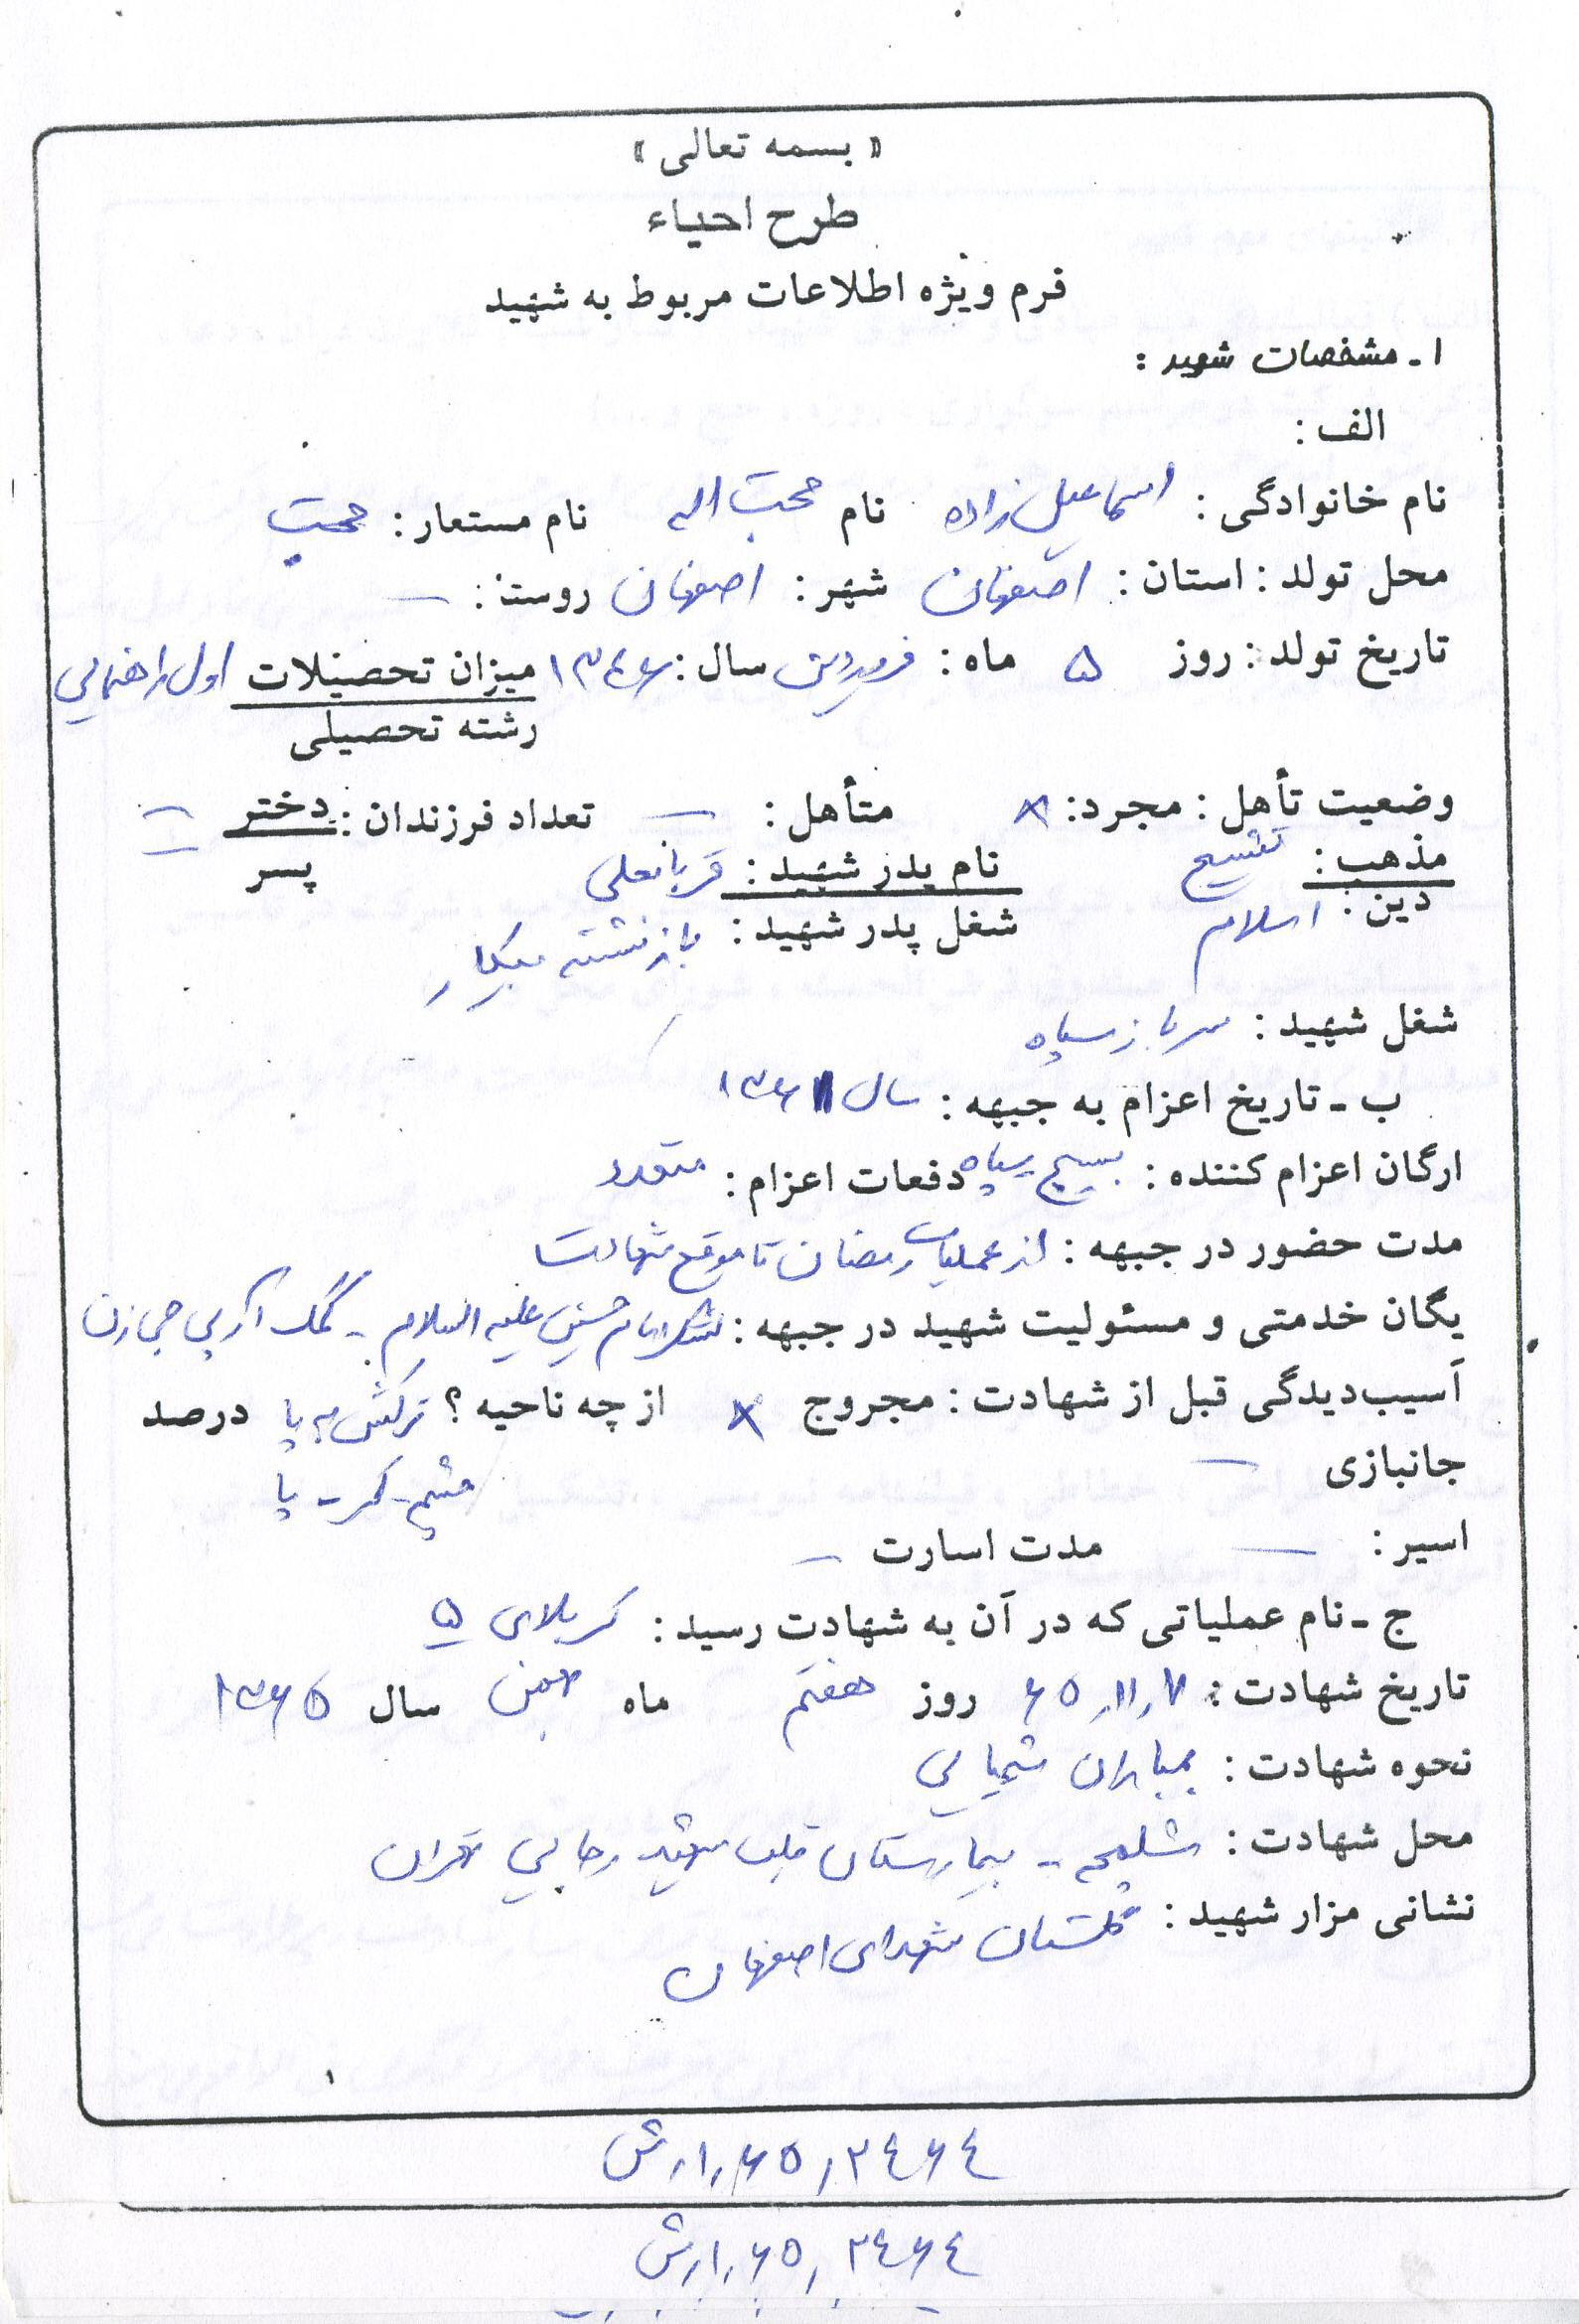 « بسمه تعالی »
طرح احیاء
فرم ویژه اطلاعات مربوط به شهید
۱ ـ مشخصات شهید :
الف :
نام خانوادگی : اسماعیل زاده نام محبت اله نام مستعار : محبت
محل تولد : استان : اصفهان شهر : اصفهان روستا : —
تاریخ تولد : روز ۵ ماه : فروردین سال : ۱۳۴۶ میزان تحصیلات اول راهنمایی
رشته تحصیلی
وضعیت تأهل : مجرد : × متأهل : — تعداد فرزندان : دختر —
مذهب : تشیع نام پدر شهید : قربانعلی پسر —
دین : اسلام شغل پدر شهید : بازنشسته بیکار
شغل شهید : سرباز سپاه
ب ـ تاریخ اعزام به جبهه : سال ۱۳۶۱
ارگان اعزام کننده : بسیج سپاه دفعات اعزام : متعدد
مدت حضور در جبهه : از عملیات رمضان تا موقع شهادت
یگان خدمتی و مسئولیت شهید در جبهه : لشکر امام حسین علیه السلام - کمک آرپی جی زن
آسیب‌دیدگی قبل از شهادت : مجروح × از چه ناحیه ؟ ترکش به پا درصد
جانبازی — چشم - کمر - پا
اسیر : — مدت اسارت —
ج ـ نام عملیاتی که در آن به شهادت رسید : کربلای ۵
تاریخ شهادت : ۶۵,۱۱,۷ روز هفتم ماه بهمن سال ۱۳۶۵
نحوه شهادت : بمباران شیمیایی
محل شهادت : شلمچه - بیمارستان قلب شهید رجایی تهران
نشانی مزار شهید : گلستان شهدای اصفهان